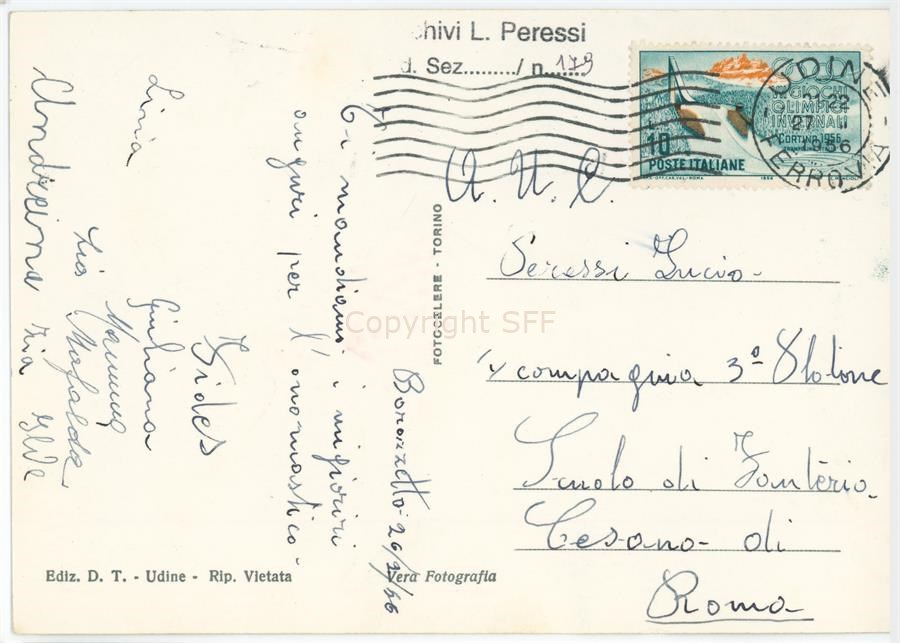 chivi L. Peressi
d. Sez........./ n.179
UDINE
FERROVIA
22
27 II
1956
GIOCHI
OLIMPICI
INVERNALI
CORTINA 1956
10
POSTE ITALIANE
A. U. C.
Peressi Lucio
compagnia 3º Plotone
Scuola di Fanteria
Cesano di
Roma
FOTOCELERE - TORINO
Ti mandiamo i migliori
auguri per l'onomastico
Borazzetto 26/2/56
Livia
Andreina zia Elda
zia Mafalda
Giuliana
Fides
Ediz. D. T. - Udine - Rip. Vietata
Vera Fotografia
Copyright SFF